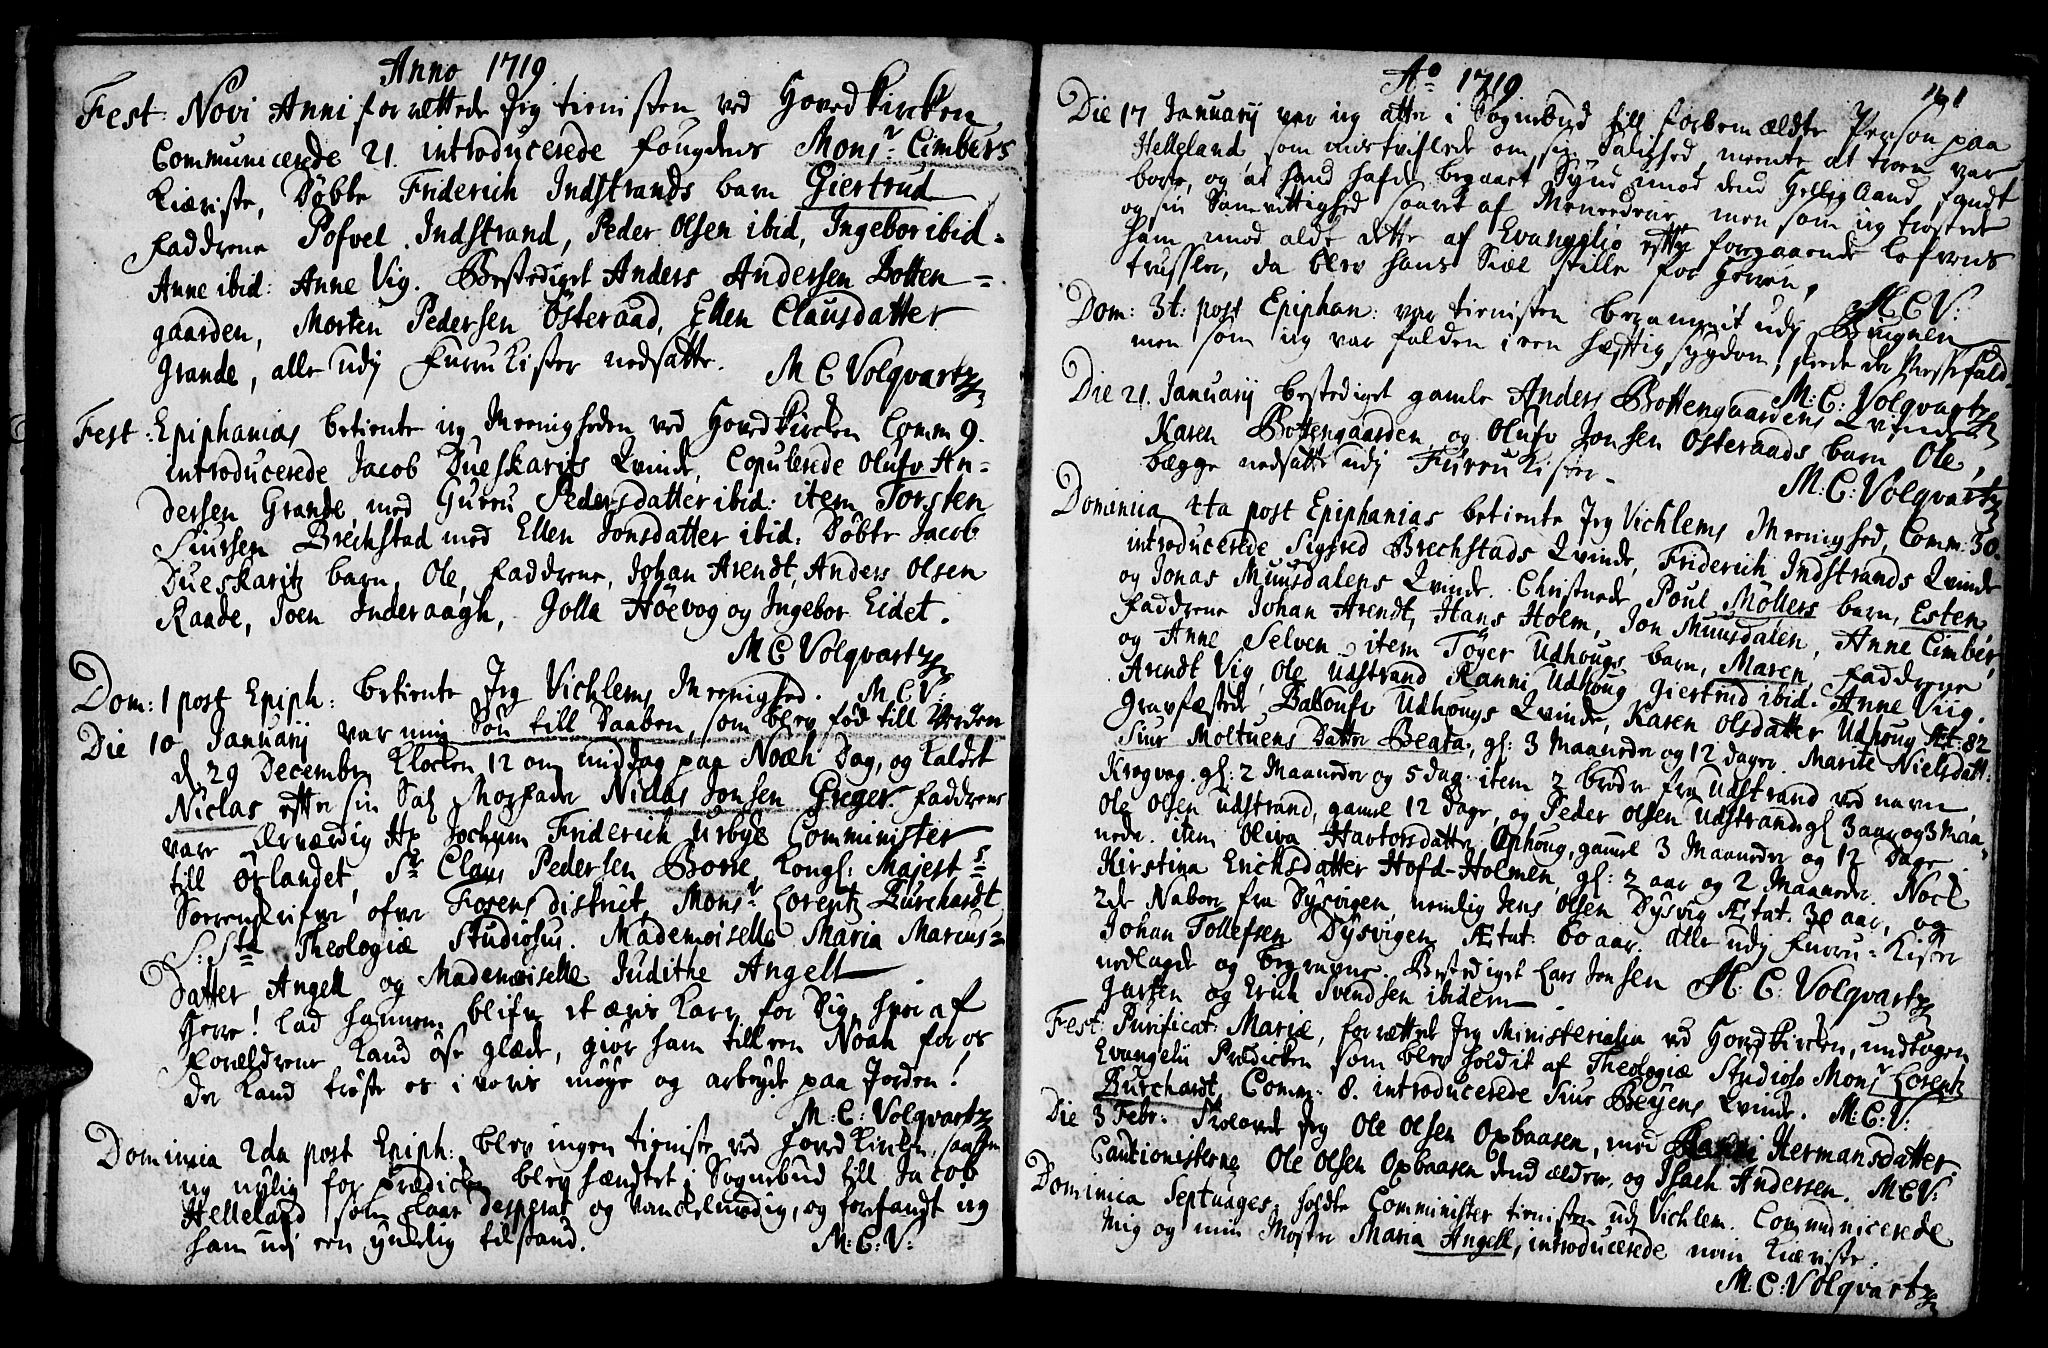 Anno 1719
Fest: Novi Anni forrettede Jeg tienisten ved Hovedkircken
Communicerede 21. introducerede fougdens Monsr Cimbers
Kiæriste, Døbte Friderich Indstrands barn Giertrud
Faddrene Pofvel Indstrand, Peder Olsen ibid, Ingebor ibid-
Anne ibid: Anne Vig. Bestediget Anders Andersen Botten=
gaarden, Morten Pedersen Østeraad, Ellen Clausdatter
Grande, alle udj Furru Kister nedsatte. M C Volqvartz
Fest: Epiphanias betiente jeg Meenigheden ved Hovedkircken Comm 9.
introducerede Jacob Dueskarits Qvinde, Copulerede Olufv An=
dersen Grande med Guru Pedersdatter ibid: item Torsten
Siursen Brechstad med Ellen Jonsdatter ibid: Døbte Jacob
Dueskaritz barn, Ole, Faddrene, Johan Arendt, Anders Olsen
Raade, Joen Inderaagh, Jolla Høevog og Ingebor Eidet.
M C Volqvartz
Dom: 1 post Epiph: betiente Jeg Vichlems Meenighed. M.C.V:
Die 10 Januarij var min Søn till Daaben, som blev fød till Verden
d. 29 December Klocken 12 om middag paa Noæh Dag, og kaldet
Niclas efter sin Sal Morfader Niclas Jonsen Greger. Faddrene
vare Ærværdig Hr Jochum Friderich Urbye Comminister
till Ørlandet, Sr Claus Pedersen Borre, Kongl: Majests
Sorrenskrifver ofver Fosens district, Monsr Lorentz Burchardt
S: Stæ Theologiæ Studiosus. Mademoiselle Maria Marcus=
Datter Angell og Mademoiselle Judithe Angell
Herre! Lad hannem blifve et æris Karr for Dig, hvor af
Forældrene kand øse glæde, giør ham till een Noah for os
der kand trøste os i voris møye og arbeyde paa Jorden!
M: C: Volqvartz
Dominica 2da post Epiph: blev ingen tieniste ved Hovedkircken, saasom
jeg nylig for Prædicken blev hændtet i Sognebud till Jacob
Helleland som laae desperat og vandelmodig, og forfandt jeg
ham udi een ynkelig tilstand. M: C: V:
Ao 1719
161
Die 17 Januarij var jeg atter i Sognebud till forbemældte Person paa
Helleland, som mistvilede om sin Salighed, meente at troen var
borte, og at hand hafde begaaet Synd imod dend Hellig Aand, fandt
og sin Samvittighed saaret af Meeneederie, men som jeg trøstede
ham imod aldt dette af Evangelio efter foregaaende Lofvens
trusler, da blev hans Siæl stille for Herren, M C V:
Dom: 3t: post Epiphan: var tienisten berammit udj Biugnen
men som jeg var falden i een hæfftig sygdom, skeede der Messefald
M: C: Volqvartz
Die 21. Januarij bestediget gamle Anders Bottengaardens Qvinde
Karen Bottengaarden, og Olufv Jonsen Østeraads barn Ole,
begge nedsatte udj Furru Kister-
M: C: Volqvartz
Dominica 4ta post Epiphanias betiente Jeg Vichlems Meenighed, Comm: 30.
introducerede Sigfred Brechstads Qvinde, Friderich Indstrands Qvinde
og Jonas Muusdalens Qvinde. Christnede Poul Møllers barn, Esten,
Faddrene Johan Arendt, Hans Holm, Jon Muusdalen, Anne Cimber,
og Anne Selven- item Tøger Udhougs barn, Maren, Faddrene
Arendt Vig, Ole Udstrand, Ranni Udhoug, Giertrud ibid. Anne Viig.
Gravfæstede Udhougs Qvinde, Karen Olsdatter Udhoug Æt: 82
Siur Moltuens Datter Beata, gl: 3 Maaneder og 12 dager. Marite Nielsdatt:
Kragvag. gl: 2 Maaneder og 5 dag: item 2 brødre fra Udstrand ved navn
Ole Olsen Udstrand, gammel 12 dage, og Peder Olsen Udstrand gl 3 aar og 3 Maa=
neder. item Oliva Hartorsdatter Ophoug, gammel 3 Maaneder og 12 Dage
Kirstina Erichsdatter Hofd-Holmen, gl: 2 aar og 2 Maaneder. Noch
2de Naboer fra Dysvigen nemlig Jens Olsen Dysvig Ætat. 30 aar, og
Johan Tollefsen Dysvigen, Ætat: 60 aar. alle udj Furru=Kister
nedlagde og begravne. Bestediget Lars Jonsen
Garten og Erich Svendsen ibidem M: C: Volqvartz
Fest: Purificat: Mariæ, forrettede Jeg Ministerialia ved Hovedkircken, undtagen
Evangelii Prædicken som blev holdit af Theologiæ Studioso Monsr Lorentz
Burchardt, Comm: 8. introducerede Siur Beyens Qvinde. M: C: V:
Die 3 Febr. Troloved Jeg Ole Olsen Oxbaasen, med Ranni Hermansdatter
Cautionisterne Ole Olsen Oxbaasen dend ældere og Isach Andersen. MCV:
Dominica Septuages. holdte Comminister tienisten udj Vichlem. Communicerede
mig og min Moster Maria Angell, introducerede min Kiæriste.
M: C: Volqvartz